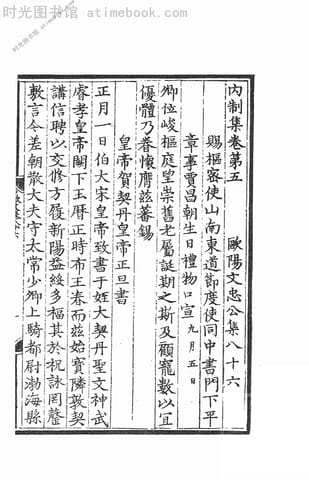 时光图书馆 atimebook.com
内制集卷第五　歐陽文忠公集八十六
賜樞密使山南東道節度使同中書門下平
章事賈昌朝生日禮物口宣九月五日
卿位峻樞庭望崇舊老屬誕期之斯及顧寵數以宜
優體乃眷懷膺茲蕃錫
皇帝賀契丹皇帝正旦書
正月一日伯大宋皇帝致書于姪大契丹聖文神武
睿孝皇帝闕下王曆正時布王春而茲始寶隣敦契
講信聘以交修方履新陽益綏多福其於祝詠罔罄
敷言今差朝散大夫守太常少卿上騎都尉渤海縣